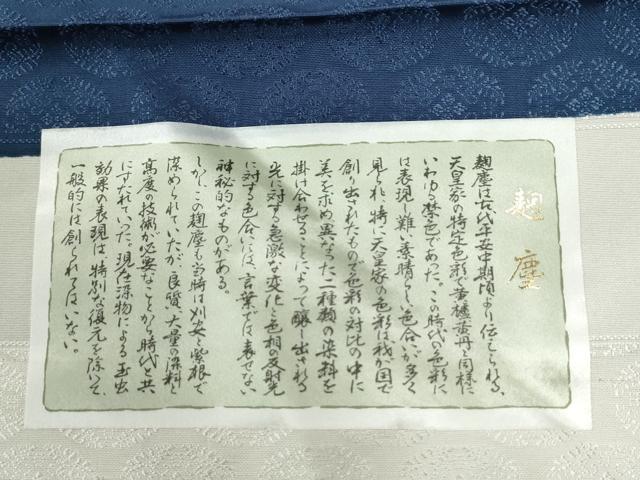 麹塵
麹塵は古代平安中期頃より伝じられる、
天皇家の特定色彩で黄櫨黄丹と同様に
いわゆる禁色であった。この時代の色彩に
は表現し難い素晴らしい色合いが多く
見られ、特に天皇家の色彩は我が国で
創り出されたもので色彩の対比の中に
美を求め異なった二種類の染料を
掛け合わせることによって醸し出される
光に対する急激な変化と色相の反射光
に対する色合いは、言葉では表せない
神秘的なものがある。
しかし、この麹塵も当時は刈安と紫根で
染められていたが、良質、大量の染料と
高度の技術が必要なことから時代と共
にすたれていった。現在染物による玉虫
効果の表現は、特別な復元を除いて、
一般的には創られてはいない。